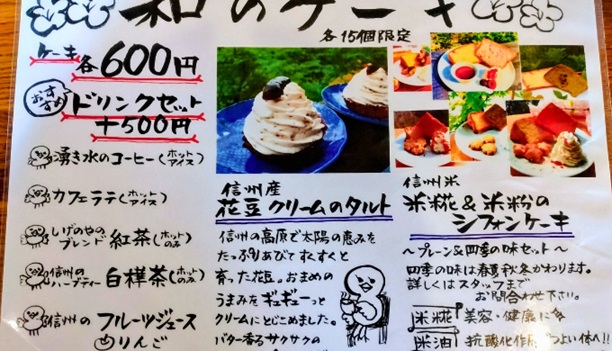 和のケーキ
各15個限定
ケーキ各600円
おすすめ ドリンクセット
+500円
湧き水のコーヒー(ホット アイス)
カフェラテ(ホット アイス)
いげのやのブレンド 紅茶(ホットのみ)
信州のハーブティー 白樺茶(ホットのみ)
信州の フルーツジュース
りんご
信州産
花豆クリームのタルト
信州の高原で太陽の恵みを
たっぷりあびてすくすくと
育った花豆。お豆の
うまみをギュギューっと
クリームにとじこめました。
バター香るサクサクの
信州米
米糀&米粉の
シフォンケーキ
~プレーン&四季の味セット~
四季の味は春夏秋冬かわります。
詳しくはスタッフまで
お問合わせ下さい。
米糀 美容・健康に
米油 抗酸化作用がつよい体へ!!